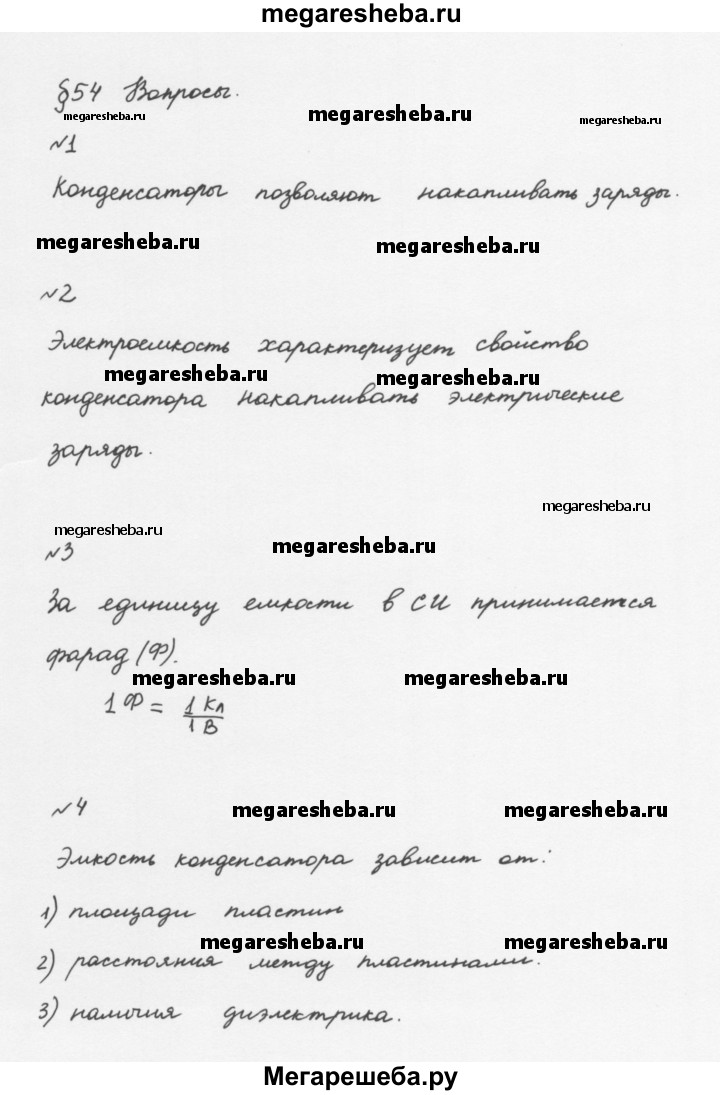 megaresheba.ru
§54 Вопросы.
megaresheba.ru megaresheba.ru megaresheba.ru
№1
Конденсаторы позволяют накапливать заряды.
megaresheba.ru megaresheba.ru
№2
Электроемкость характеризует свойство
megaresheba.ru megaresheba.ru
конденсатора накапливать электрические
заряды.
megaresheba.ru
megaresheba.ru megaresheba.ru
№3
За единицу емкости в СИ принимается
фарад (Ф).
megaresheba.ru megaresheba.ru
1 Ф = 1 Кл / 1 В
№4
megaresheba.ru megaresheba.ru
Эмкость конденсатора зависит от:
1) площади пластин
megaresheba.ru megaresheba.ru
2) расстояния между пластинами.
3) наличия диэлектрика.
Мегарешеба.ру